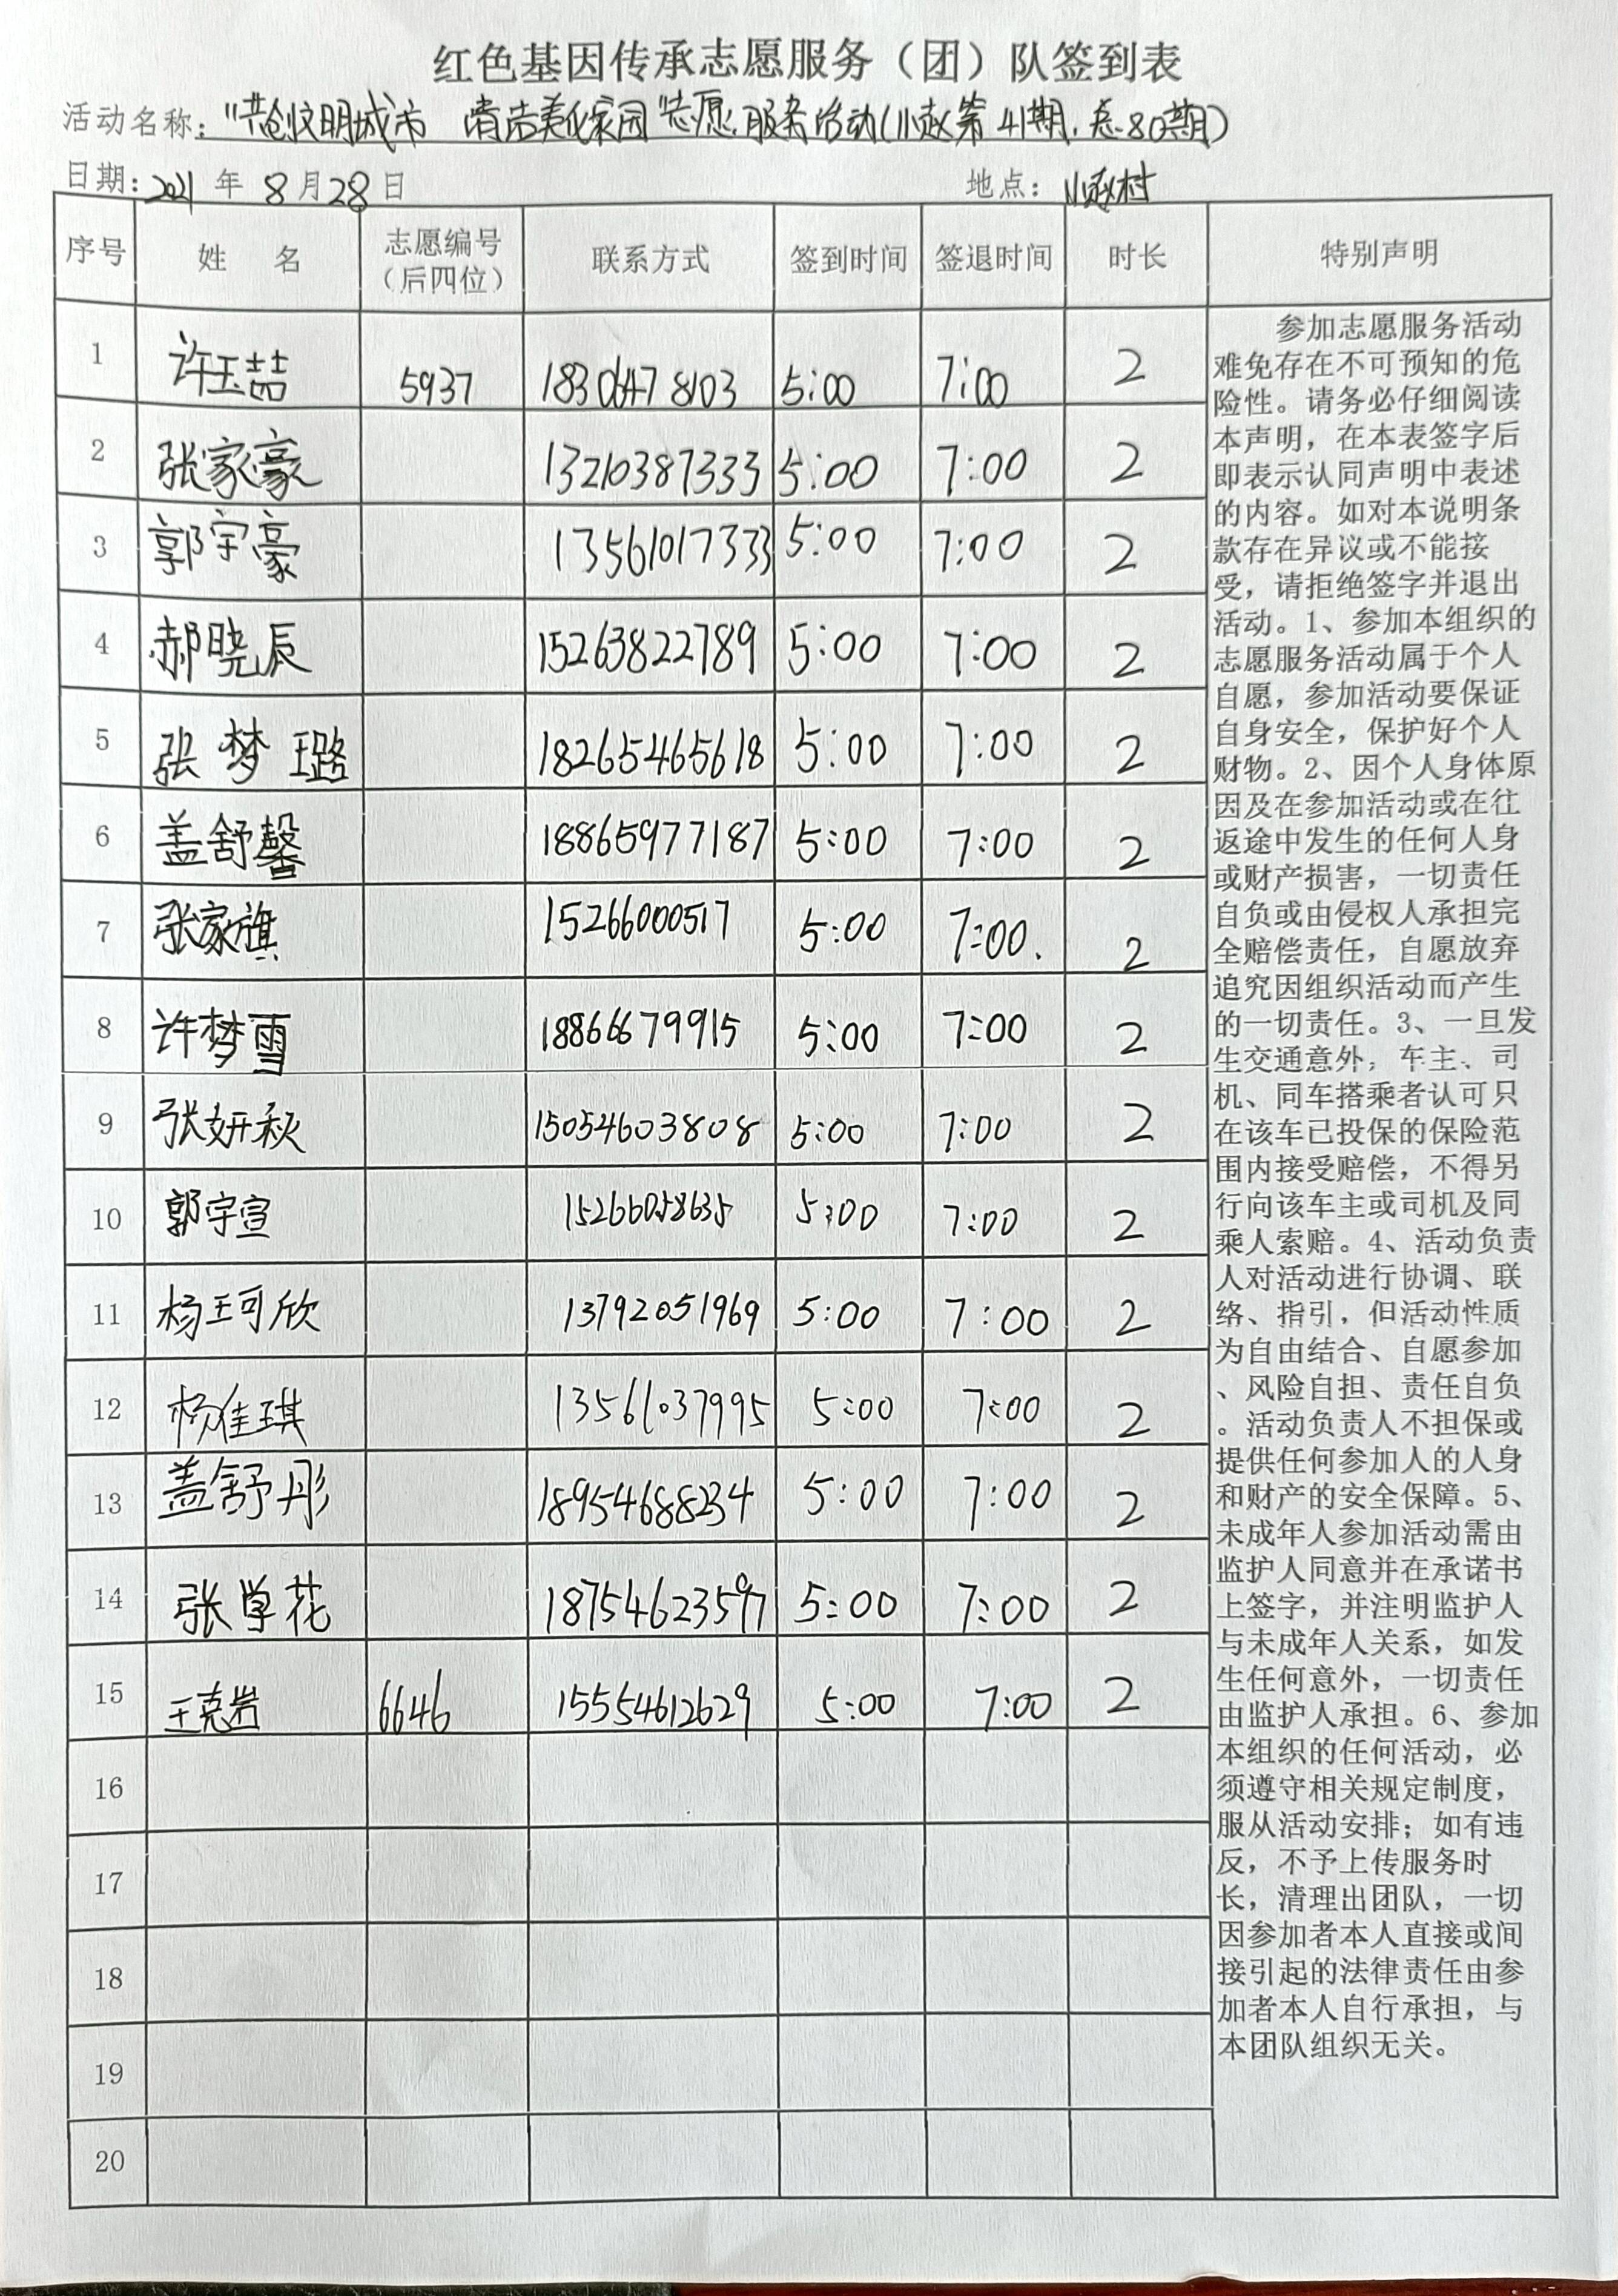 红色基因传承志愿服务（团）队签到表
活动名称：“共创文明城市 清洁美化家园”志愿服务活动（小赵第41期，总80期）
日期：2021年8月28日 地点：小赵村
序号 姓 名 志愿编号（后四位） 联系方式 签到时间 签退时间 时长 特别声明
1 许玉喆 5937 18306478103 5:00 7:00 2
2 张家豪 13210387333 5:00 7:00 2
3 郭宇豪 13561017333 5:00 7:00 2
4 郝晓辰 15263822789 5:00 7:00 2
5 张梦璐 18265465618 5:00 7:00 2
6 盖舒馨 18865977187 5:00 7:00 2
7 张家旗 15266000517 5:00 7:00. 2
8 许梦雪 18866679915 5:00 7:00 2
9 张妍秋 15054603808 5:00 7:00 2
10 郭宇宣 15266058635 5:00 7:00 2
11 杨王可欣 13792051969 5:00 7:00 2
12 杨佳琪 13561037995 5:00 7:00 2
13 盖舒彤 18954688234 5:00 7:00 2
14 张学花 18754623597 5:00 7:00 2
15 王克岩 6646 15554612629 5:00 7:00 2
16
17
18
19
20
参加志愿服务活动
难免存在不可预知的危
险性。请务必仔细阅读
本声明，在本表签字后
即表示认同声明中表述
的内容。如对本说明条
款存在异议或不能接
受，请拒绝签字并退出
活动。1、参加本组织的
志愿服务活动属于个人
自愿，参加活动要保证
自身安全，保护好个人
财物。2、因个人身体原
因及在参加活动或在往
返途中发生的任何人身
或财产损害，一切责任
自负或由侵权人承担完
全赔偿责任，自愿放弃
追究因组织活动而产生
的一切责任。3、一旦发
生交通意外，车主、司
机、同车搭乘者认可只
在该车已投保的保险范
围内接受赔偿，不得另
行向该车主或司机及同
乘人索赔。4、活动负责
人对活动进行协调、联
络、指引，但活动性质
为自由结合、自愿参加
、风险自担、责任自负
。活动负责人不担保或
提供任何参加人的人身
和财产的安全保障。5、
未成年人参加活动需由
监护人同意并在承诺书
上签字，并注明监护人
与未成年人关系，如发
生任何意外，一切责任
由监护人承担。6、参加
本组织的任何活动，必
须遵守相关规定制度，
服从活动安排；如有违
反，不予上传服务时
长，清理出团队，一切
因参加者本人直接或间
接引起的法律责任由参
加者本人自行承担，与
本团队组织无关。